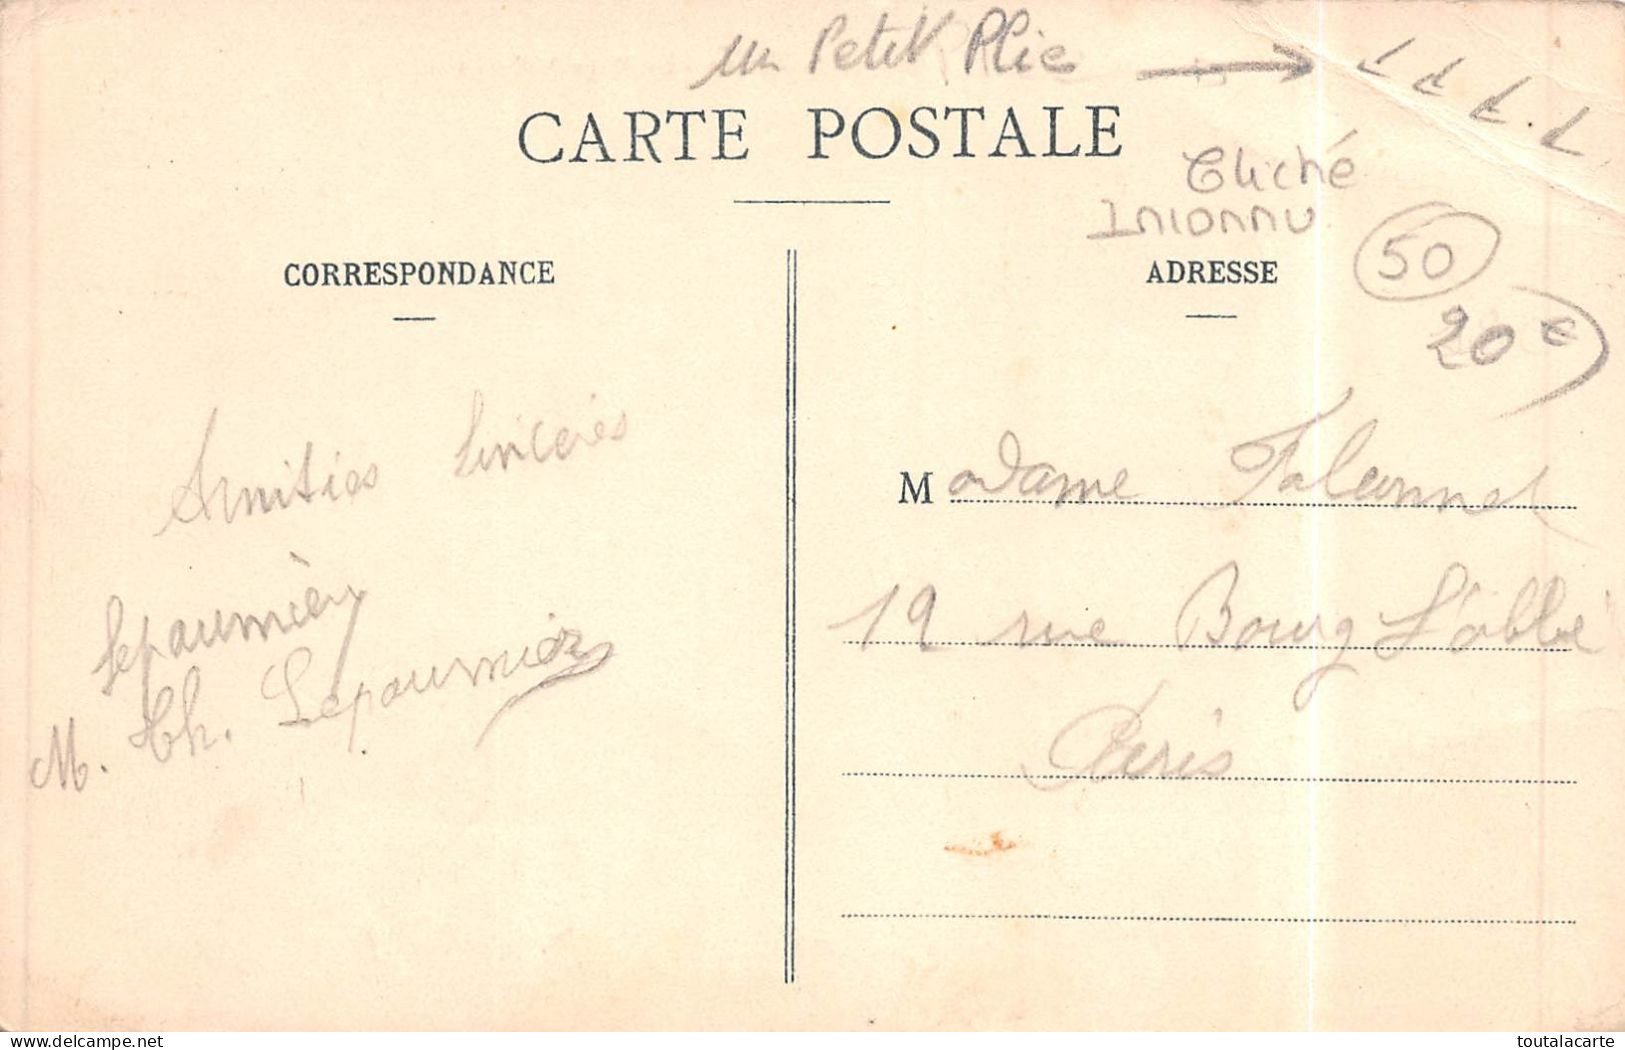 un Petit Plie
CARTE POSTALE
Cliché
Inconnu
50
20 €
CORRESPONDANCE
ADRESSE
Amitiés Sincères
Lepaumier
M. Ch. Lepaumier
Madame
19 rue Bourg l'abbé
Paris
delcampe.net
toutalacarte